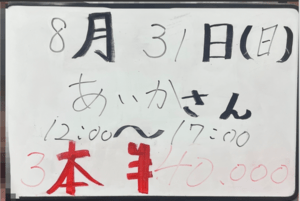 8月31日(日)
あいかさん
12:00〜17:00
3本半 40.000